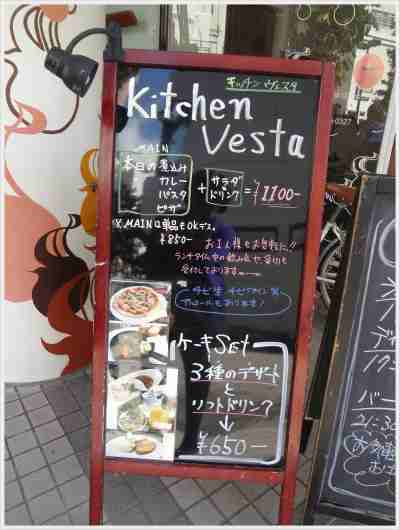 キッチン ヴェスタ
Kitchen
Vesta
MAIN
本日の煮込み
カレー
パスタ
ピザ
+ サラダ
ドリンク = ¥1100-
※MAINは単品もOKデス。
¥850-
お1人様もお気軽に!!
ランチタイム中の飲み会や、貸切も
受付しております
アルコールもあります!
ケーキSet
3種のデザート
と
ソフトドリンク
↓
¥650-
21:30